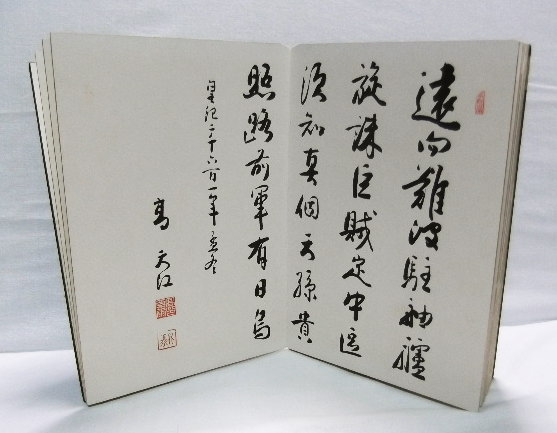 遠向難波駐舳艫
旋誅巨賊定中區
須知真個天孫貴
照路前軍有日烏
皇紀二千六百一年孟冬
高天江